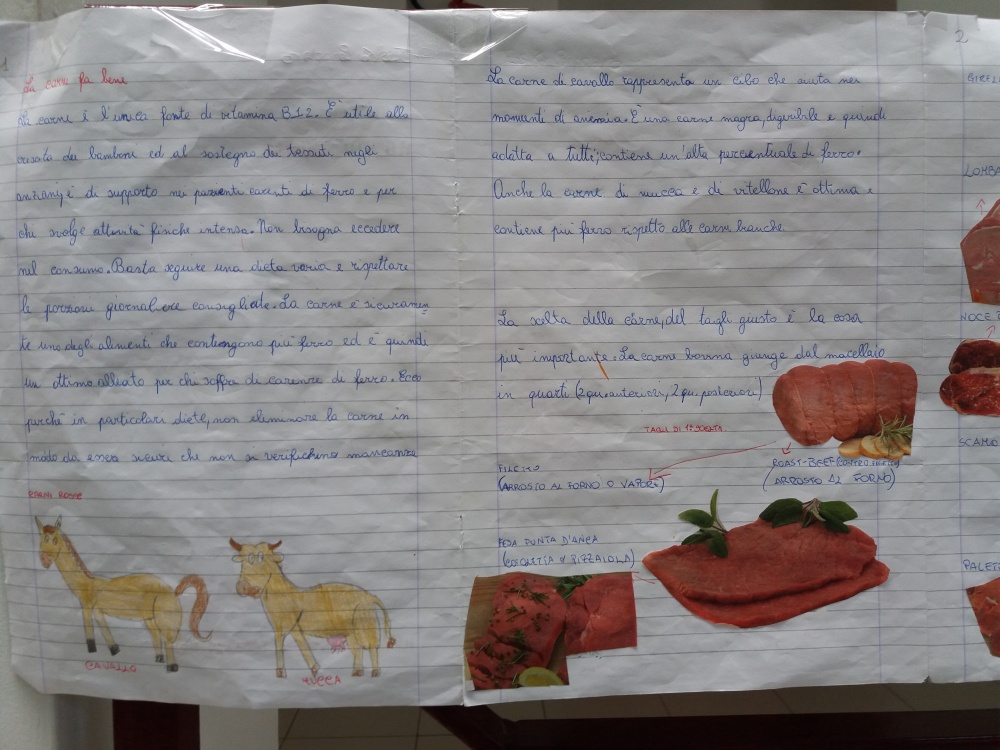 1
La carne fa bene
La carne è l'unica fonte di vitamina B12. È utile alla
crescita dei bambini ed al sostegno dei tessuti negli
anziani, è di supporto nei pazienti carenti di ferro e per
chi svolge attività fisiche intense. Non bisogna eccedere
nel consumo. Basta seguire una dieta varia e rispettare
le porzioni giornaliere consigliate. La carne è sicuramen
te uno degli alimenti che contengono più ferro ed è quindi
un ottimo alleato per chi soffre di carenze di ferro. Ecco
perché in particolari diete, non eliminare la carne in
modo da essere sicuri che non si verifichino mancanze
CARNI ROSSE
CAVALLO
MUCCA
La carne di cavallo rappresenta un cibo che aiuta nei
momenti di anemia. È una carne magra, digeribile e quindi
adatta a tutti; contiene un'alta percentuale di ferro.
Anche la carne di mucca e di vitellone è ottima e
contiene più ferro rispetto alle carni bianche.
La scelta della carne, del tagli giusto è la cosa
più importante. La carne bovina giunge dal macellaio
in quarti (2 qu. anteriori, 2 qu. posteriori)
TAGLI DI 1ª SCELTA.
FILETTO
(ARROSTO AL FORNO O VAPORE)
ROAST-BEEF (CONTRO FILETTO)
(ARROSTO AL FORNO)
FESA PUNTA D'ANCA
(COTOLETTA o PIZZAIOLA)
2
GIREL
LOMBA
NOCE
SCAMO
PALET